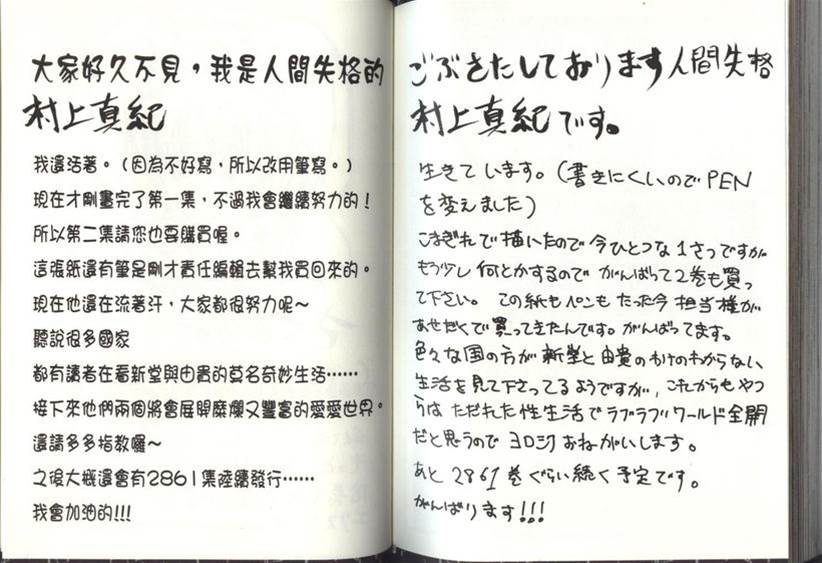 大家好久不見，我是人間失格的
村上真紀
我還活著。（因為不好寫，所以改用筆寫。）
現在才剛畫完了第一集，不過我會繼續努力的！
所以第二集請您也要購買喔。
這張紙還有筆是剛才責任編輯去幫我買回來的。
現在他還在流著汗，大家都很努力呢～
聽說很多國家
都有讀者在看新堂與由貴的莫名奇妙生活……
接下來他們兩個將會展開糜爛又豐富的愛愛世界。
還請多多指教囉～
之後大概還會有2861集陸續發行……
我會加油的!!!
ごぶさたしております人間失格
村上真紀です。
生きています。（書きにくいのでPEN
を変えました）
こまぎれで描いたので今ひとつな1さつですが
もう少し何とかするので がんばって2巻も買っ
て下さい。この紙もペンもたった今担当様が
あせだくで買ってきたんです。がんばってます。
色々な国の方が新堂と由貴のわけのわからない
生活を見て下さってるようですが、これからもやつ
らはただれた性生活でラブラブワールド全開
だと思うのでヨロシクおねがいします。
あと2861巻ぐらい続く予定です。
がんばります!!!